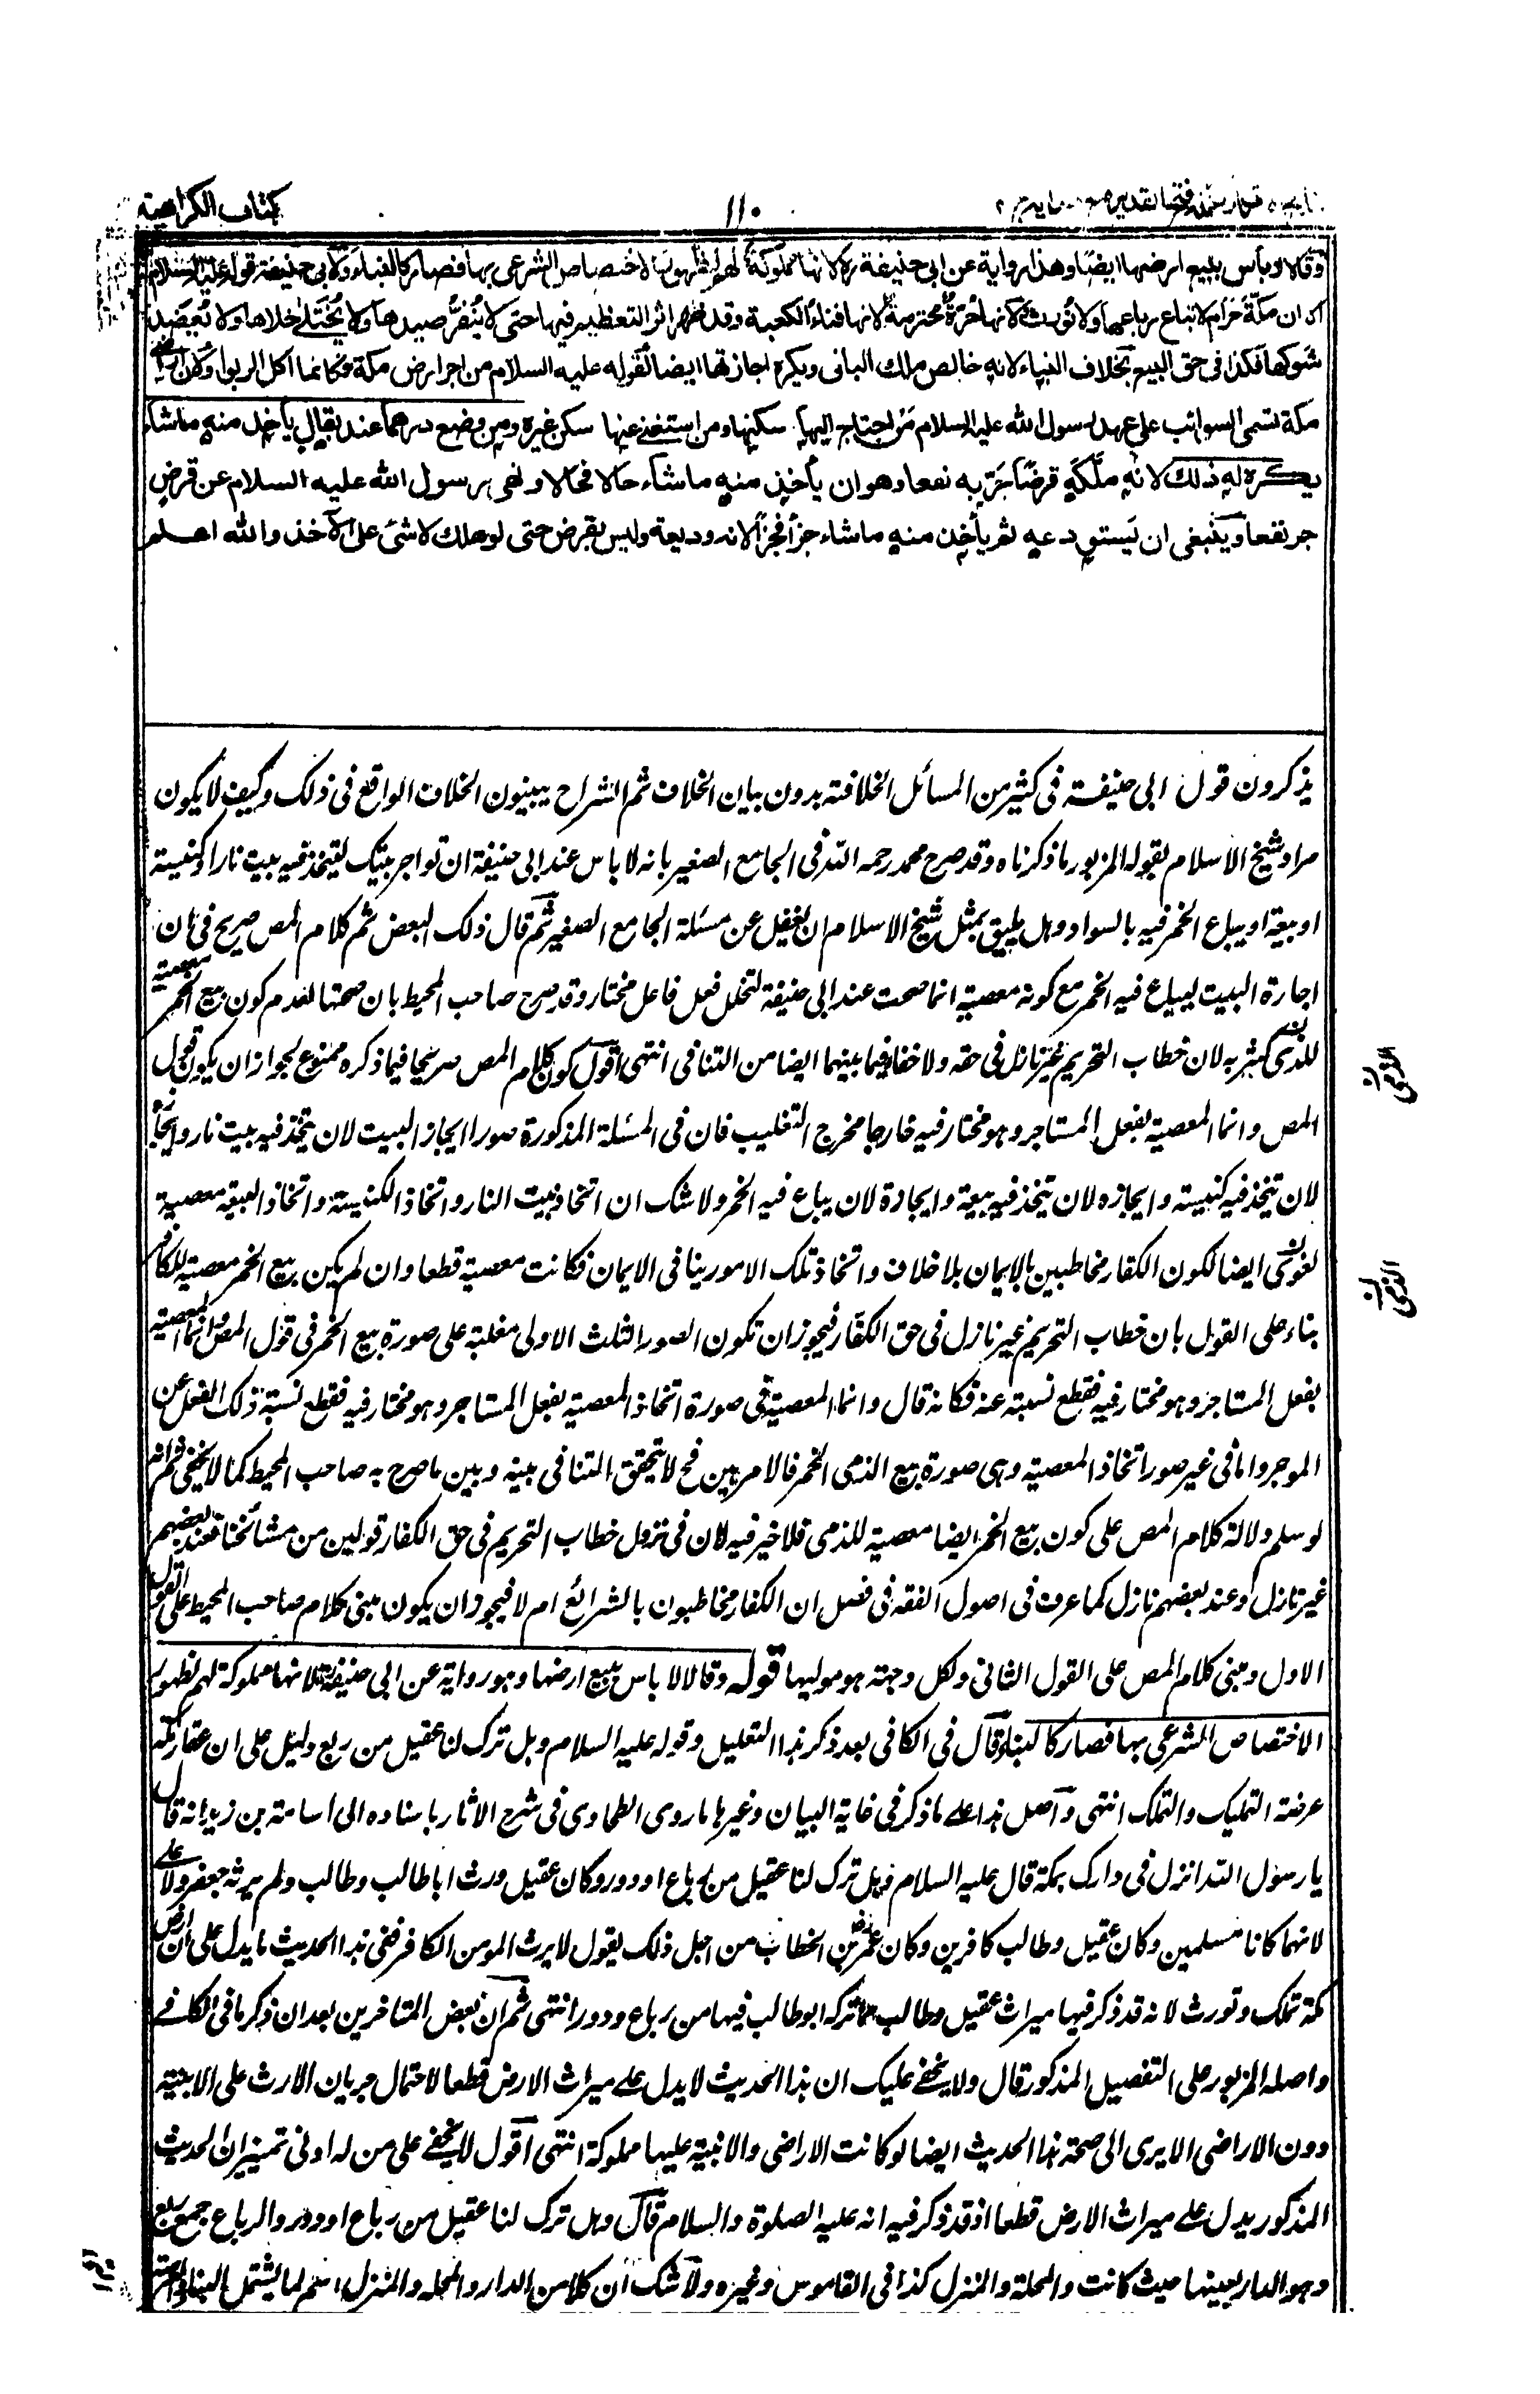 كتاب الكراهية
١١٠
وقالا لا بأس ببيع ارضها ايضا وهذا رواية عن ابي حنيفة ره لانها مملوكة لهم لظهور الاختصاص الشرعي بها فصار كالبناء ولابي حنيفة قوله عليه السلام
الا ان مكة حرام لا تباع رباعها ولا تورث ولانها حرة محترمة لانها فناء الكعبة وقد ظهر اثر التعظيم فيها حتى لا ينفر صيدها ولا يختلى خلاها ولا يعضد
شوكها فكذا في حق البيع بخلاف البناء لانه خالص ملك الباني ويكره اجارتها ايضا لقوله عليه السلام من اجر ارض مكة فكانما اكل الربوا ولان اراضي
مكة تسمى السوائب على عهد رسول الله عليه السلام من احتاج اليها سكنها ومن استغنى عنها سكن غيره ومن وضع درهما عند بقال يأخذ منه ما شاء
يكره له ذلك لانه ملكه قرضا جر به نفعا وهو ان يأخذ منه ما شاء حالا فحالا ونهى رسول الله عليه السلام عن قرض
جر نفعا وينبغي ان يستودعه ثم يأخذ منه ما شاء جزأ فجزأ لانه وديعة وليس بقرض حتى لو هلك لا شئ على الآخذ والله اعلم
يذكرون قول ابي حنيفة في كثير من المسائل الخلافية بدون بيان الخلاف ثم الشراح يبينون الخلاف الواقع في ذلك وكيف لا يكون
مراد شيخ الاسلام بقوله المزبور ما ذكرناه وقد صرح محمد رحمه الله في الجامع الصغير بانه لا باس عند ابي حنيفة ان تواجر بيتك ليتخذ فيه بيت نار او كنيسة
او بيعة او يباع الخمر فيه بالسواد وهل يليق بمثل شيخ الاسلام ان يغفل عن مسئلة الجامع الصغير ثم قال ذلك البعض ثم كلام المص صريح في ان
اجارة البيت ليباع فيه الخمر مع كونه معصية انما صحت عند ابي حنيفة لتخلل فعل فاعل مختار وقد صرح صاحب المحيط بان صحتها لعدم كون بيع الخمر معصية
للذمي كشربه لان خطاب التحريم غير نازل في حقه ولا خفاء فيما بينهما ايضا من التنافي انتهى اقول كون كلام المص صريحا فيما ذكره ممنوع لجواز ان يكون قول
المص وانما المعصية بفعل المستاجر وهو مختار فيه خارجا مخرج التغليب فان في المسئلة المذكورة صورا ايجار البيت لان يتخذ فيه بيت نار وايجاره
لان يتخذ فيه كنيسة وايجاره لان يتخذ فيه بيعة وايجاره لان يباع فيه الخمر ولا شك ان اتخاذ بيت النار واتخاذ الكنيسة واتخاذ البيعة معصية
للذمي ايضا لكون الكفار مخاطبين بالايمان بلا خلاف واتخاذ تلك الامور ينافي الايمان فكانت معصية قطعا وان لم يكن بيع الخمر معصية للكافر
بناء على القول بان خطاب التحريم غير نازل في حق الكفار فيجوز ان تكون الصور الثلث الاولى مغلبة على صورة بيع الخمر في قول المص وانما المعصية
بفعل المستاجر وهو مختار فيه فقطع نسبته عنه فكانه قال وانما المعصية في صورة اتخاذ المعصية بفعل المستاجر وهو مختار فيه فقطع نسبة ذلك الفعل عن
الموجر واما في غير صور اتخاذ المعصية وهي صورة بيع الذمي الخمر فالامر بين فح لا يتحقق التنافي بينه وبين ما صرح به صاحب المحيط كما لا يخفى ثم انه
لو سلم دلالة كلام المص على كون بيع الخمر ايضا معصية للذمي فلا خير فيه لان في نزول خطاب التحريم في حق الكفار قولين من مشائخنا فعند بعضهم
غير نازل وعند بعضهم نازل كما عرف في اصول الفقه في فصل ان الكفار مخاطبون بالشرائع ام لا فيجوز ان يكون مبنى كلام صاحب المحيط على القول
الاول ومبنى كلام المص على القول الثاني ولكل وجهة هو موليها قوله وقالا لا باس ببيع ارضها وهو رواية عن ابي حنيفة لانها مملوكة لهم لظهور
الاختصاص الشرعي بها فصار كالبناء وقال في الكافي بعد ذكر هذا التعليل وقوله عليه السلام وهل ترك لنا عقيل من ربع دليل على ان عقار مكة
عرضة التمليك والتملك انتهى واصل هذا على ما ذكر في غاية البيان وغيرها ما روى الطحاوي في شرح الاثار باسناده الى اسامة بن زيد انه قال
يا رسول الله انزل في دارك بمكة قال عليه السلام وهل ترك لنا عقيل من رباع او دور وكان عقيل ورث ابا طالب وطالب ولم يرثه جعفر ولا علي
لانهما كانا مسلمين وكان عقيل وطالب كافرين وكان عمر بن الخطاب من اجل ذلك يقول لا يرث المومن الكافر ففي هذا الحديث ما يدل على ان ارض
مكة تملك وتورث لانه قد ذكر فيها ميراث عقيل وطالب مما تركه ابو طالب فيها من رباع ودور انتهى ثم ان بعض المتاخرين بعد ان ذكر ما في الكافي
واصله المزبور على التفصيل المذكور قال ولا يخفى عليك ان هذا الحديث لا يدل على ميراث الارض قطعا لاحتمال جريان الارث على الابنية
دون الاراضي الا يرى الى صحة هذا الحديث ايضا لو كانت الاراضي والابنية عليها مملوكة انتهى اقول لا يخفى على من له ادنى تمييز ان الحديث
المذكور يدل على ميراث الارض قطعا اذ قد ذكر فيه انه عليه الصلوة والسلام قال وهل ترك لنا عقيل من رباع او دور والرباع جمع ربع
وهو الدار بعينها حيث كانت والمحلة والمنزل كذا في القاموس وغيره ولا شك ان كلا من الدار والمحلة والمنزل اسم لما يشتمل البناء